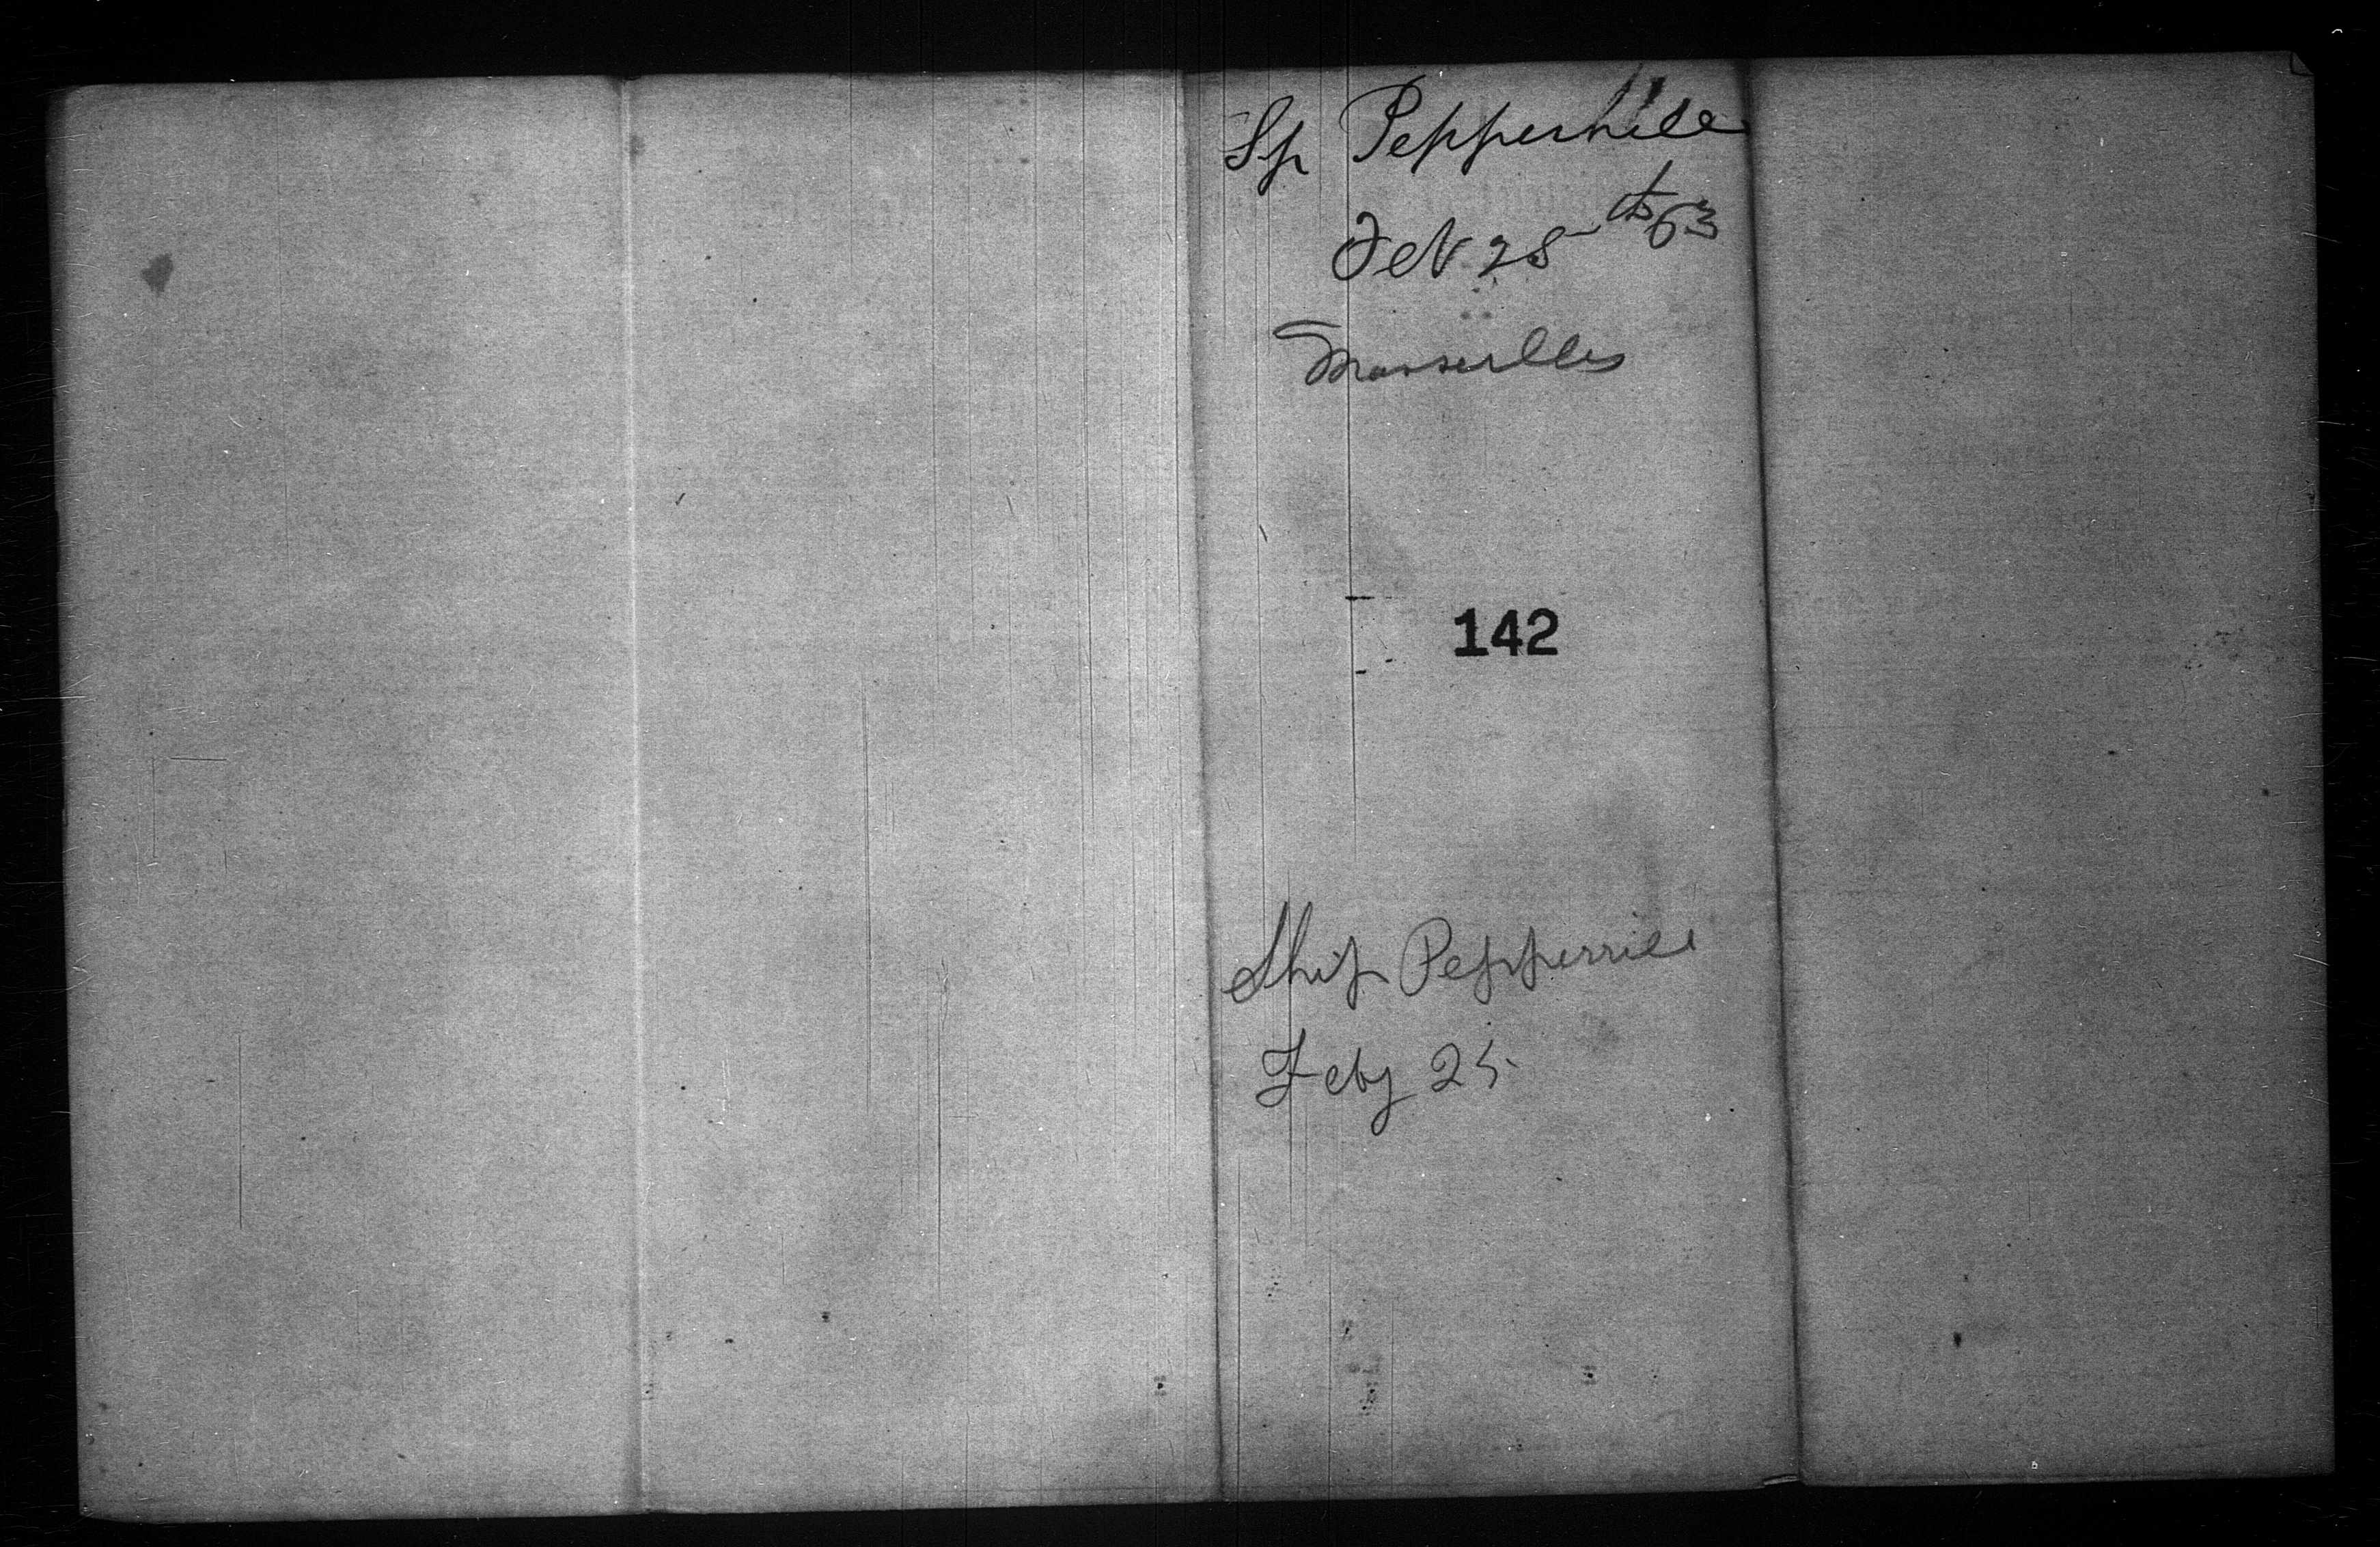 Sp Pepperrell
Feb 25th 63
Marseilles
142
Ship Pepperrell
Feby 25